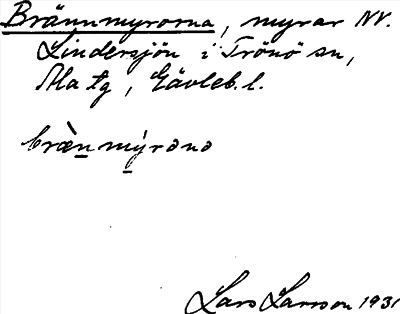 Brännmyrorna, myrar NV.
Lindersjön i Trönö sn,
Ala tg, Gävleb. l.
bræ̀n mýrəno
Lars Larsson 1931